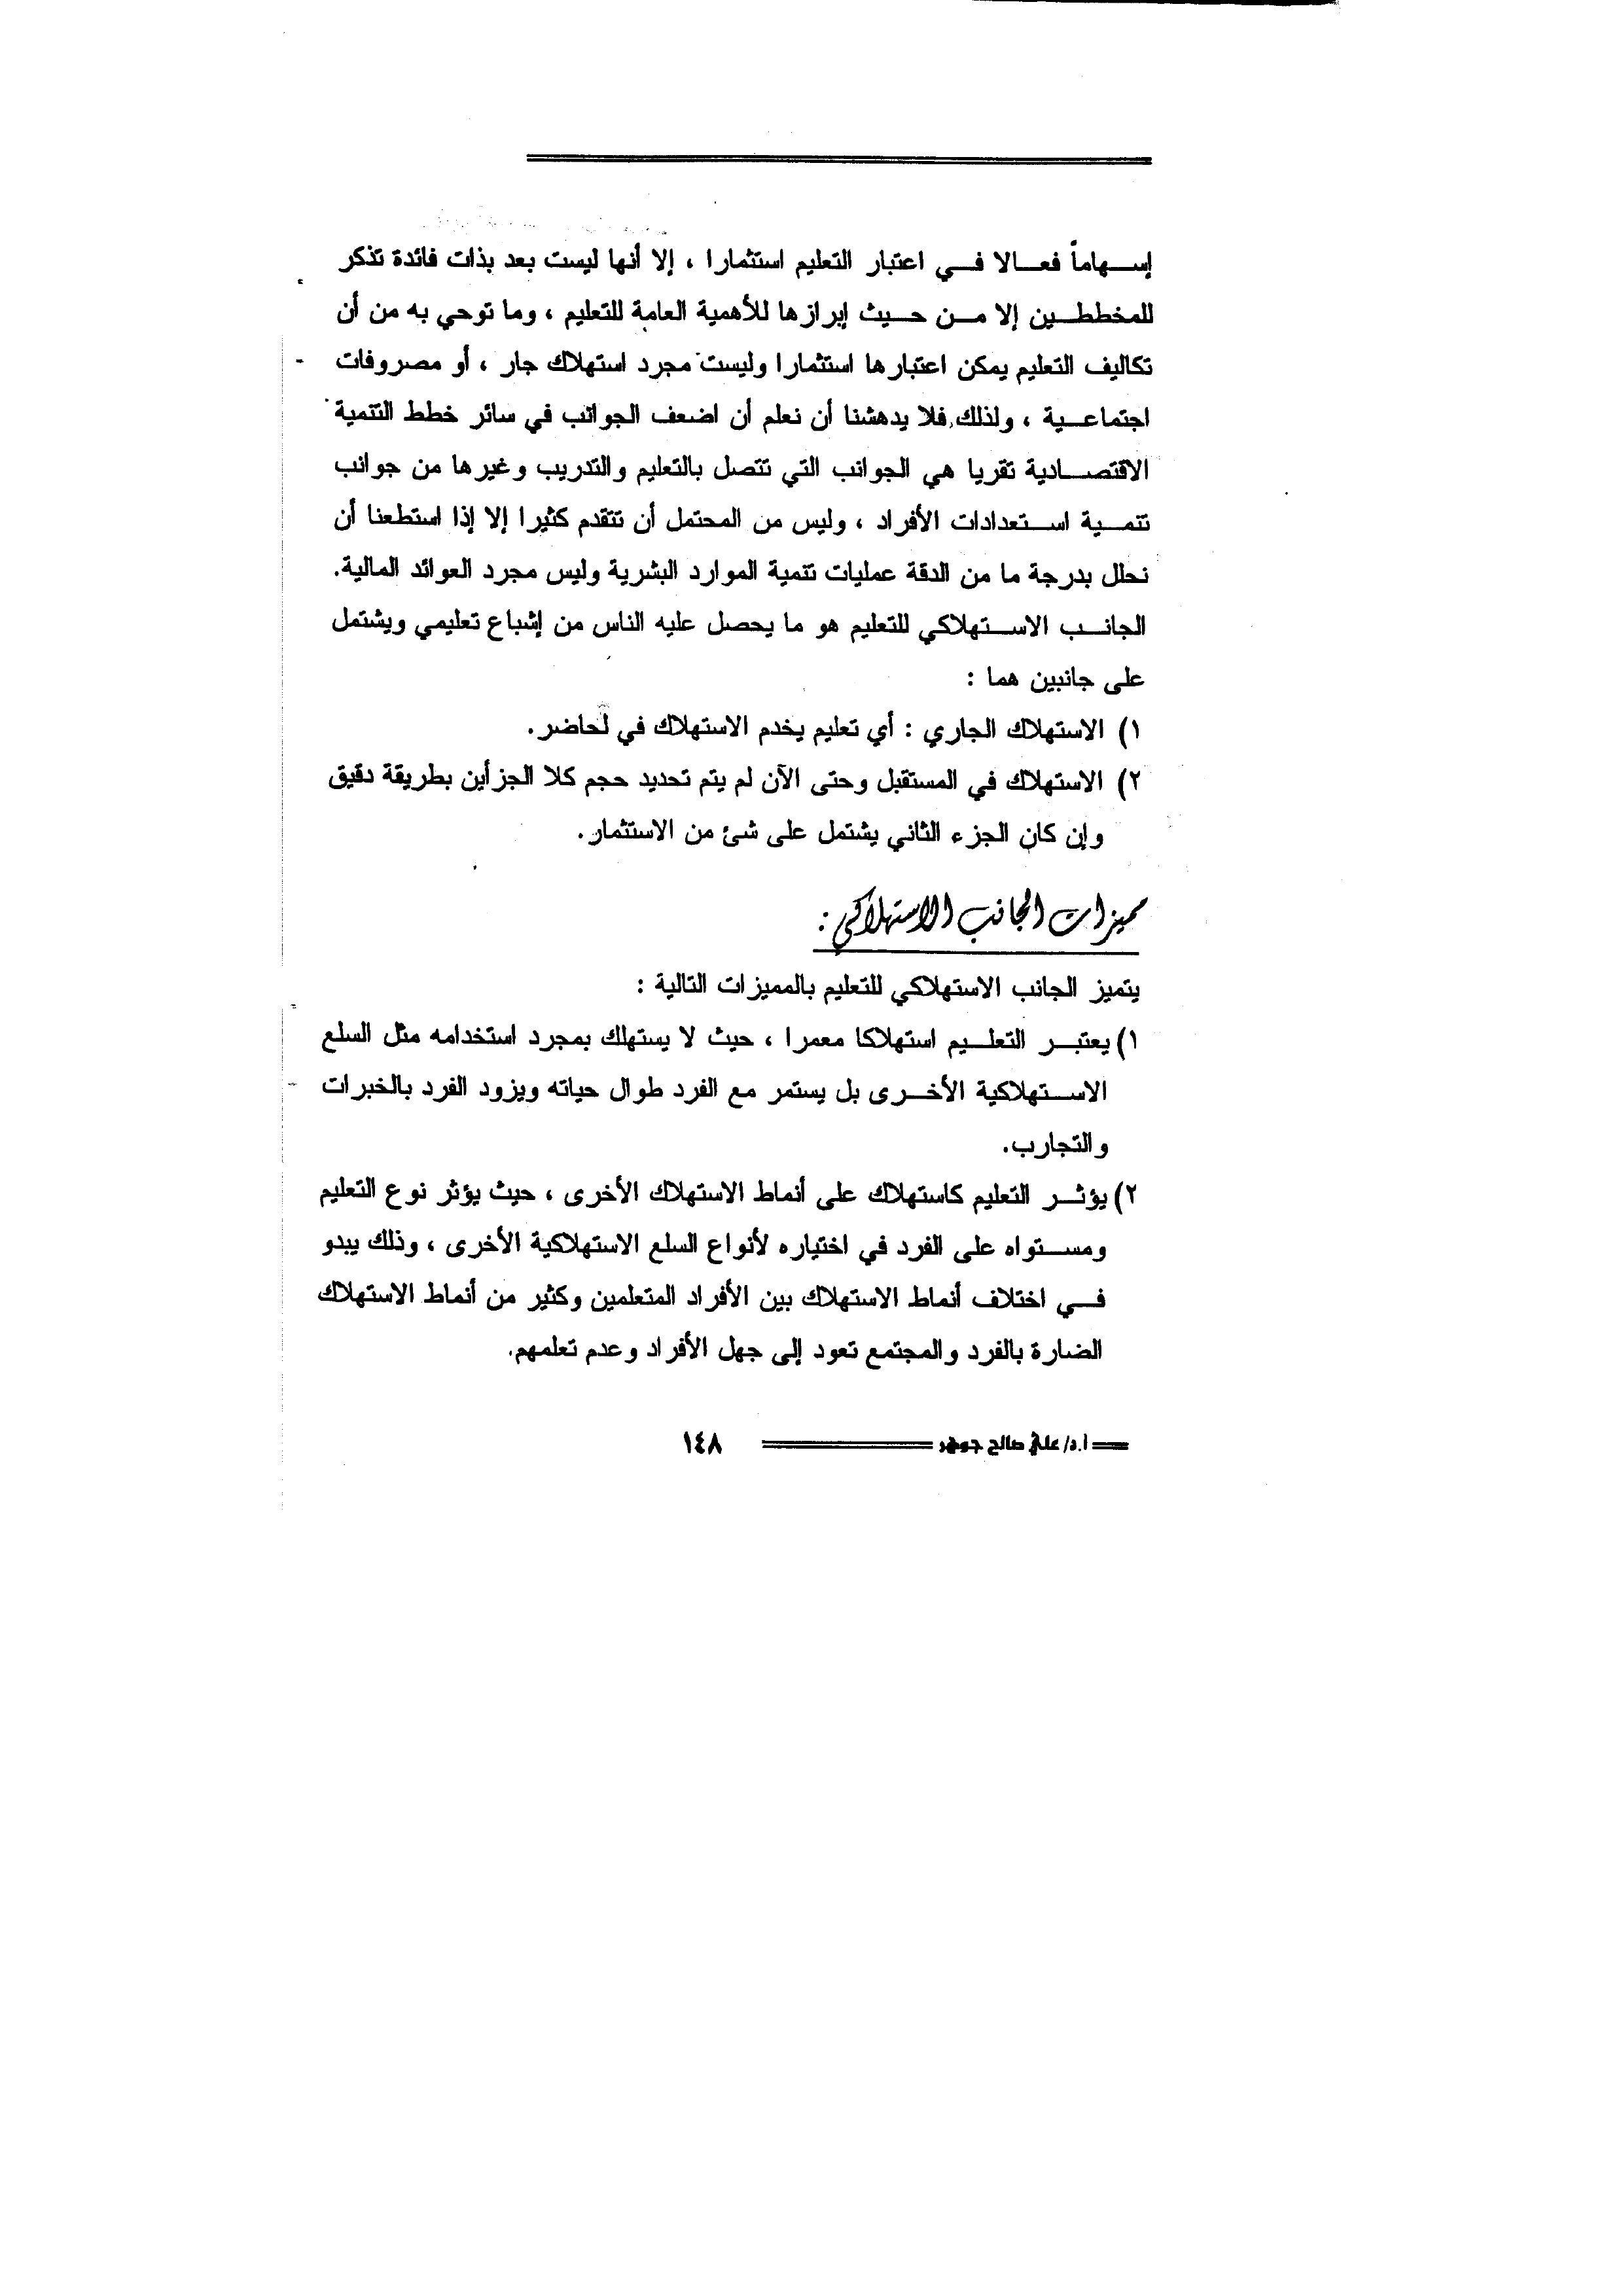 إسهاماً فعالا في اعتبار التعليم استثمارا ، إلا أنها ليست بعد بذات فائدة تذكر
للمخططين إلا من حيث إبرازها للأهمية العامة للتعليم ، وما توحي به من أن
تكاليف التعليم يمكن اعتبارها استثمارا وليست مجرد استهلاك جار ، أو مصروفات
اجتماعية ، ولذلك فلا يدهشنا أن نعلم أن اضعف الجوانب في سائر خطط التنمية
الاقتصادية تقريا هي الجوانب التي تتصل بالتعليم والتدريب وغيرها من جوانب
تنمية استعدادات الأفراد ، وليس من المحتمل أن تتقدم كثيرا إلا إذا استطعنا أن
نحلل بدرجة ما من الدقة عمليات تنمية الموارد البشرية وليس مجرد العوائد المالية.
الجانب الاستهلاكي للتعليم هو ما يحصل عليه الناس من إشباع تعليمي ويشتمل
على جانبين هما :
١) الاستهلاك الجاري : أي تعليم يخدم الاستهلاك في لحاضر.
٢) الاستهلاك في المستقبل وحتى الآن لم يتم تحديد حجم كلا الجزأين بطريقة دقيق
وإن كان الجزء الثاني يشتمل على شئ من الاستثمار.
مميزات الجانب الاستهلاكي :
يتميز الجانب الاستهلاكي للتعليم بالمميزات التالية :
١) يعتبر التعليم استهلاكا معمرا ، حيث لا يستهلك بمجرد استخدامه مثل السلع
الاستهلاكية الأخرى بل يستمر مع الفرد طوال حياته ويزود الفرد بالخبرات
والتجارب.
٢) يؤثر التعليم كاستهلاك على أنماط الاستهلاك الأخرى ، حيث يؤثر نوع التعليم
ومستواه على الفرد في اختياره لأنواع السلع الاستهلاكية الأخرى ، وذلك يبدو
في اختلاف أنماط الاستهلاك بين الأفراد المتعلمين وكثير من أنماط الاستهلاك
الضارة بالفرد والمجتمع تعود إلى جهل الأفراد وعدم تعلمهم.
أ.د/ علي صالح جوهر ١٤٨